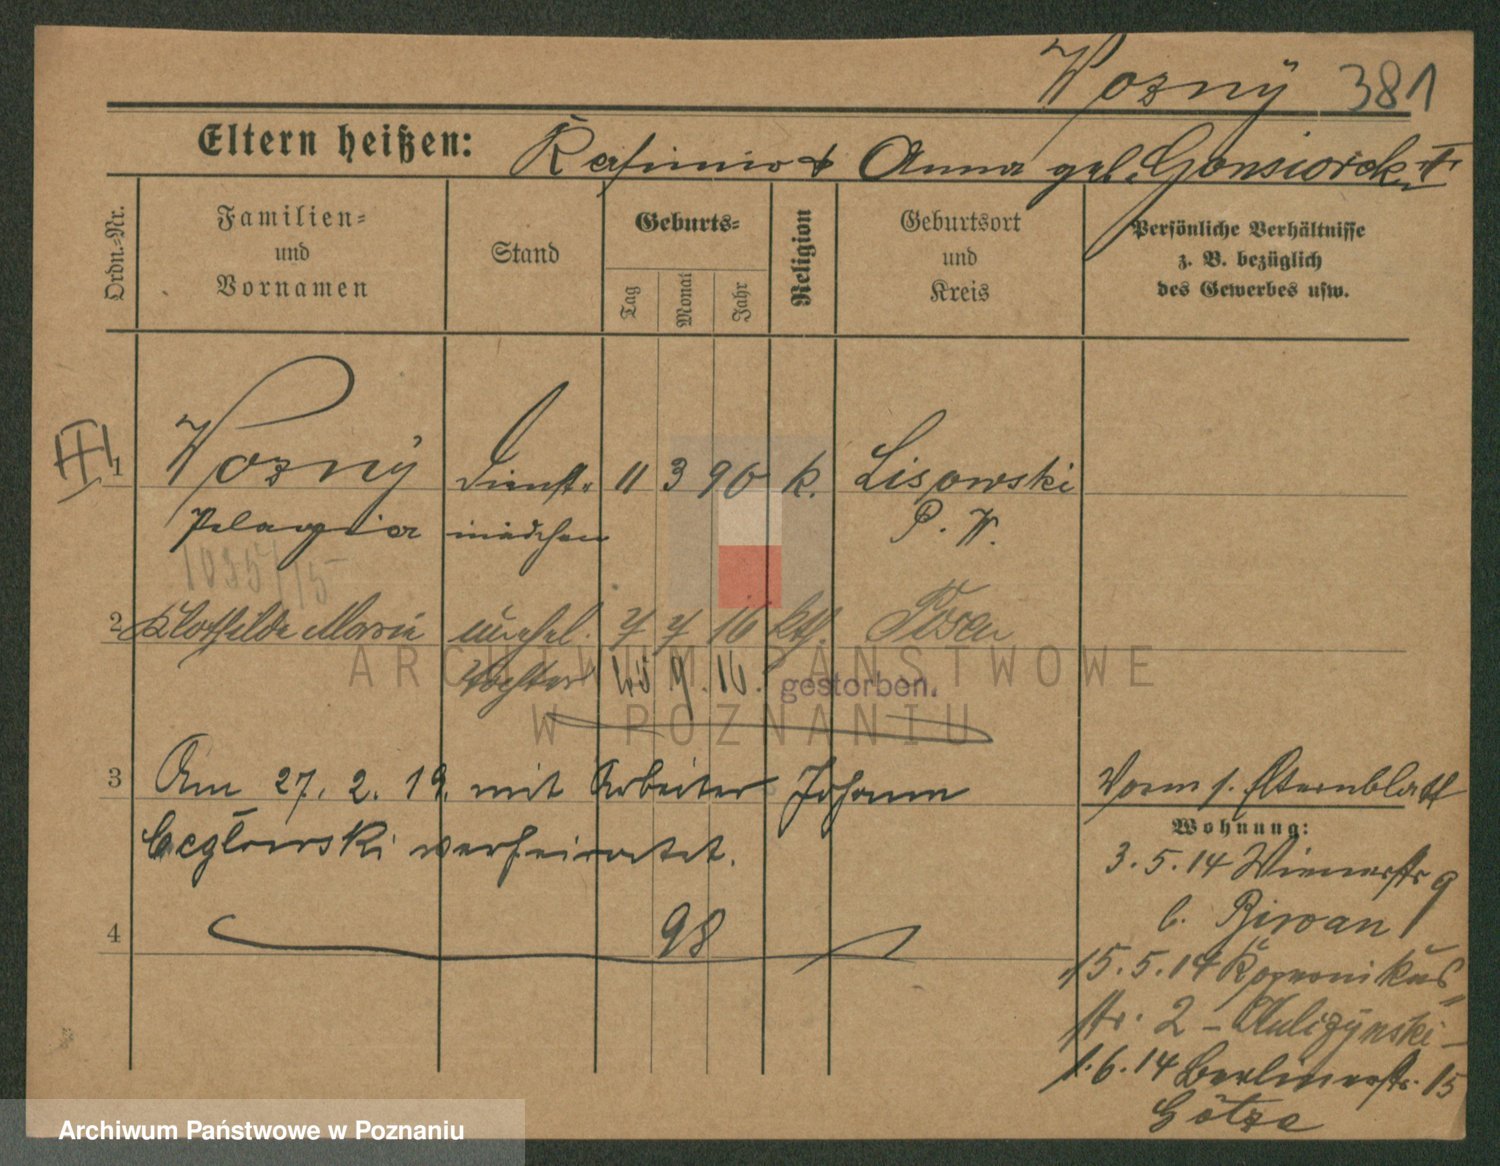 Wozny 381
Eltern heißen: Kasimir & Anna geb. Gonsiorek
Ordn.-Nr.
Familien-
und
Vornamen
Stand
Geburts-
Tag
Monat
Jahr
Religion
Geburtsort
und
Kreis
Persönliche Verhältnisse
z. B. bezüglich
des Gewerbes usw.
1 Wozny Dienst- 11 3 90 k. Lisowski
Pelagia mädchen P. W.
1035/15
2 Klothilde Marie unehel. 7 7 16 kth. Posen
Tochter 9. 16. gestorben.
ARCHIWUM PAŃSTWOWE
W POZNANIU
3 Am 27. 2. 19. mit Arbeiter Johann
Ceglowski verheiratet.
4 98
Vorm s. Elternblatt
Wohnung:
3. 5. 14 Wienerstr 9
b. Birwan
15. 5. 14 Kopernikus-
str. 2 -
1. 6. 14 Berlinerstr. 15
Götze
Archiwum Państwowe w Poznaniu